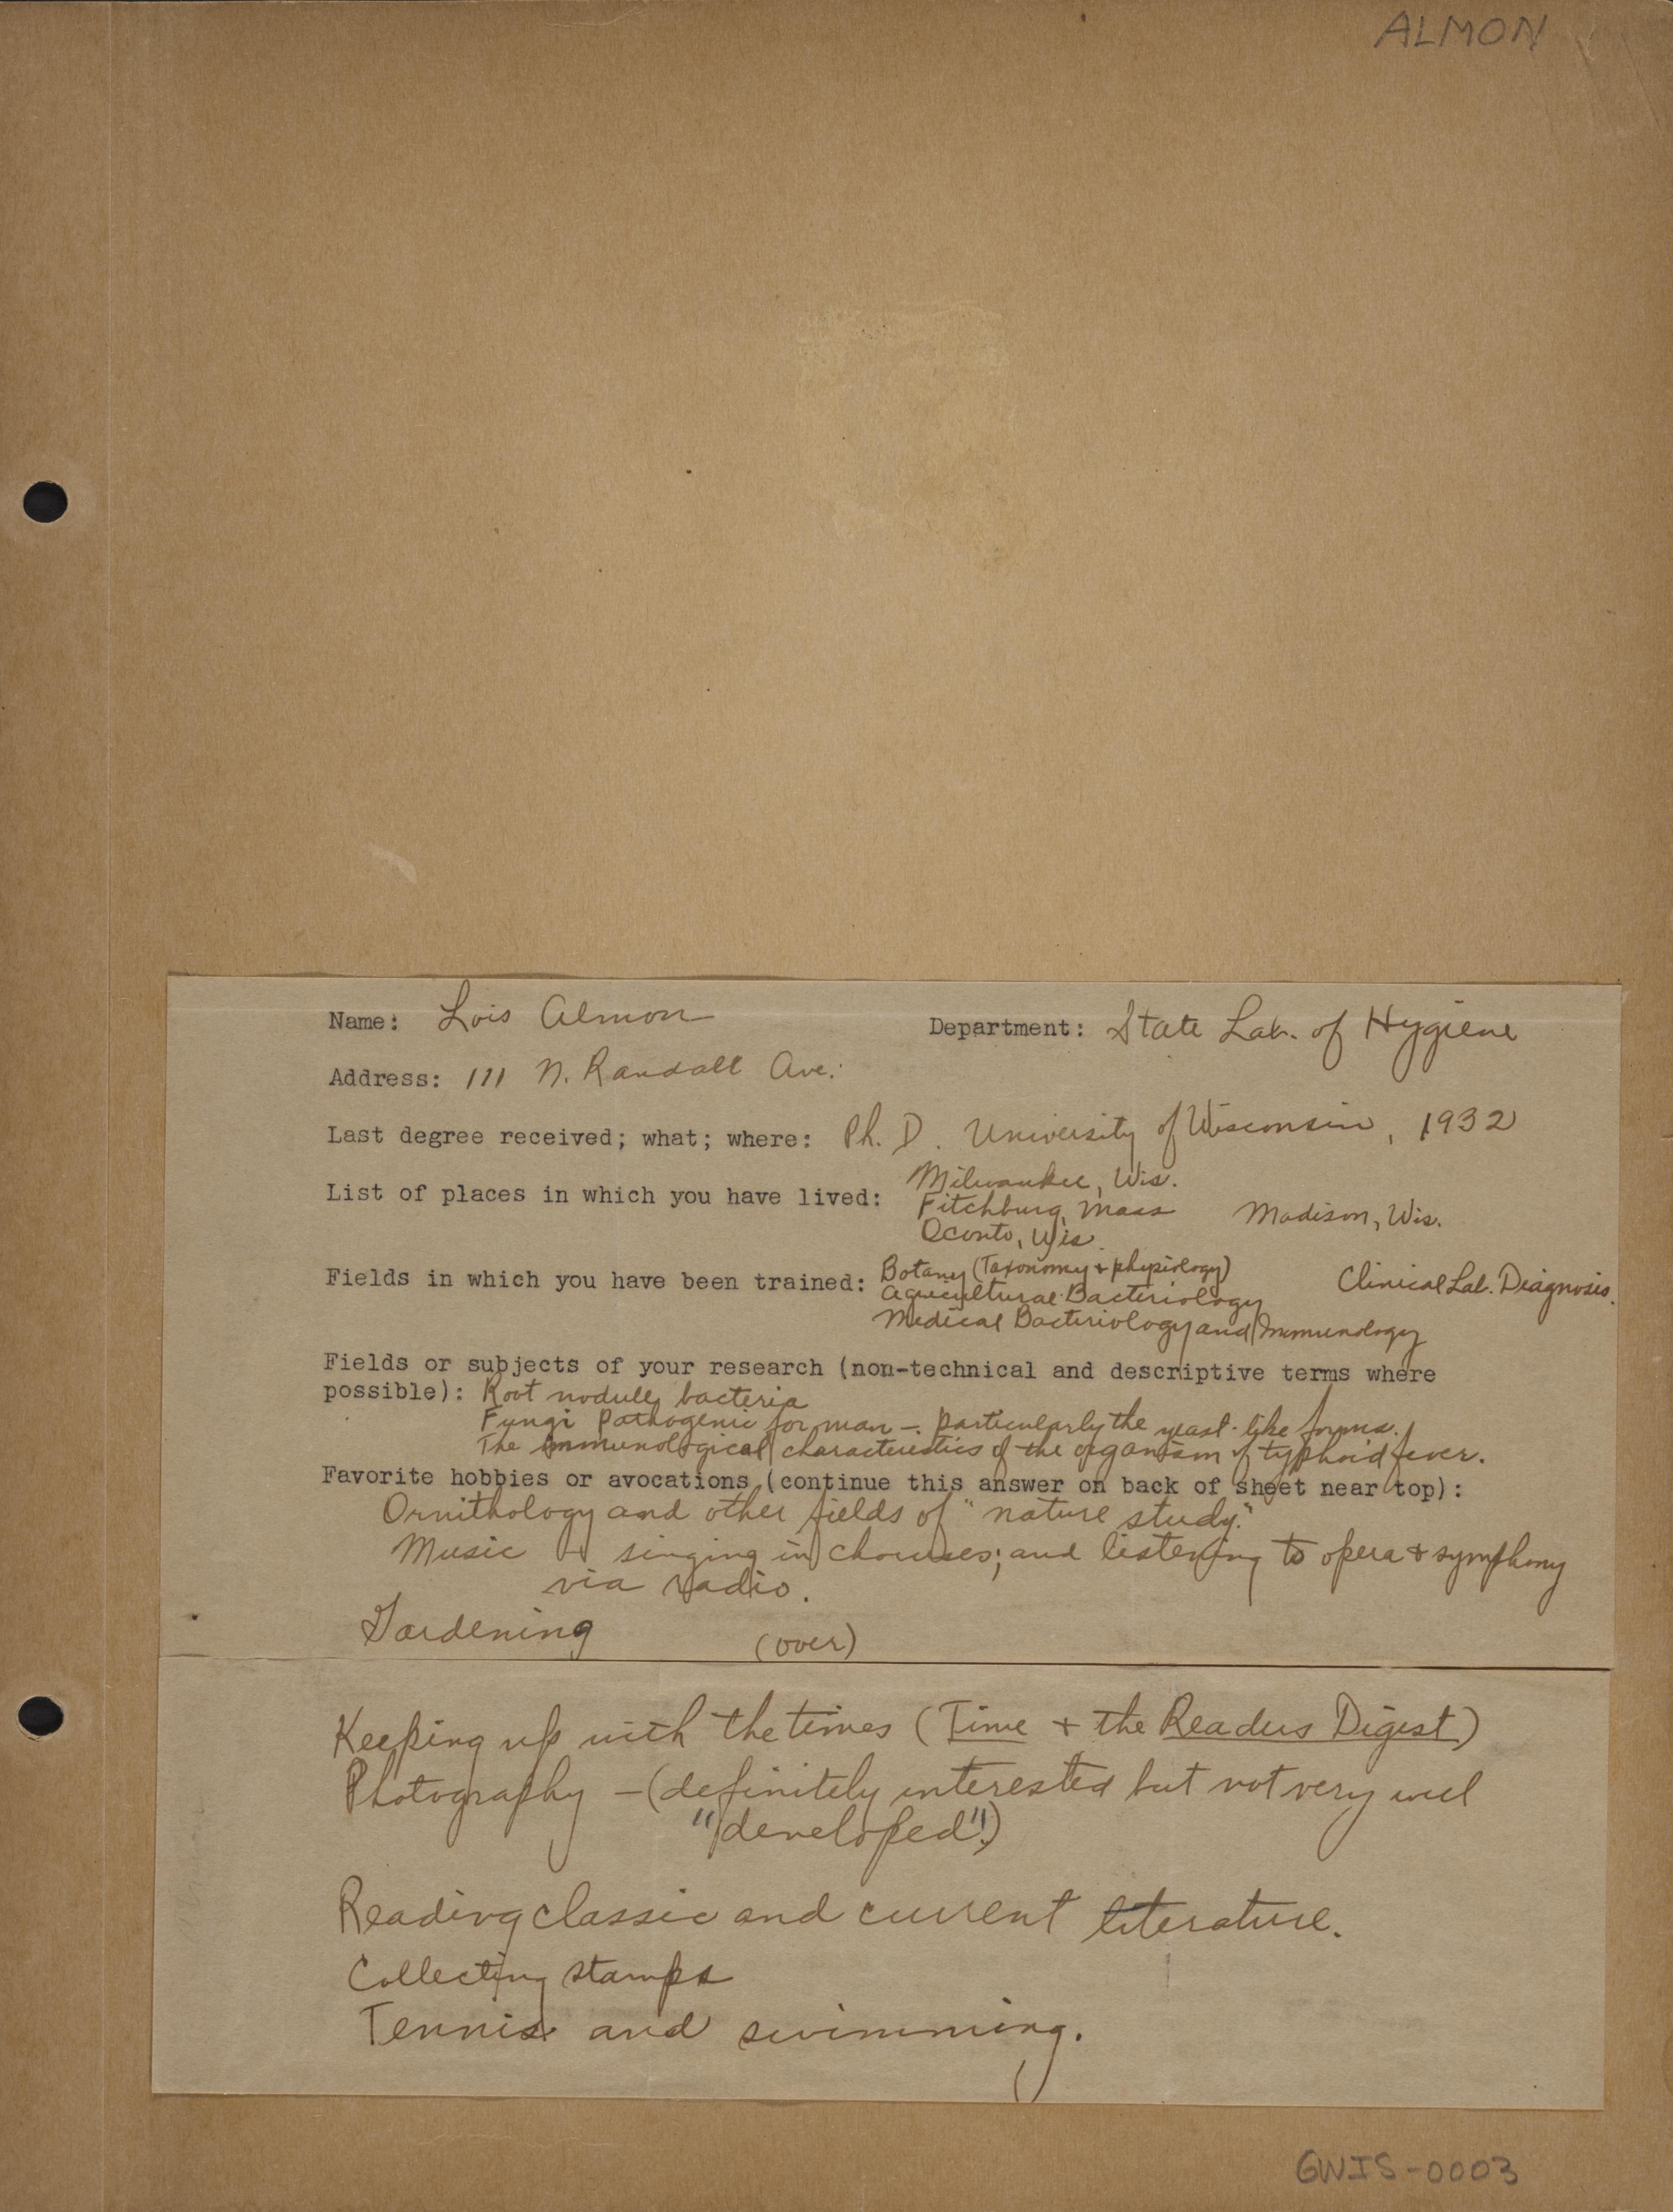 ALMON
Name: Lois Almon
Department: State Lab. of Hygiene
Address: 111 N. Randall Ave.
Last degree received; what; where: Ph. D. University of Wisconsin, 1932
List of places in which you have lived: Milwaukee, Wis.
Fitchburg, Mass Madison, Wis.
Oconto, Wis.
Fields in which you have been trained: Botany (Taxonomy + physiology) Clinical Lab. Diagnosis.
Agricultural Bacteriology
Medical Bacteriology and Immunology
Fields or subjects of your research (non-technical and descriptive terms where
possible): Root nodule bacteria
Fungi pathogenic for man - particularly the yeast-like forms.
The immunological characteristics of the organism of typhoid fever.
Favorite hobbies or avocations (continue this answer on back of sheet near top):
Ornithology and other fields of "nature study."
Music - singing in choruses; and listening to opera + symphony
via radio.
Gardening (over)
Keeping up with the times (Time + the Readers Digest)
Photography - (definitely interested but not very well
"developed".)
Reading classic and current literature.
Collecting stamps
Tennis and swimming.
GWIS-0003